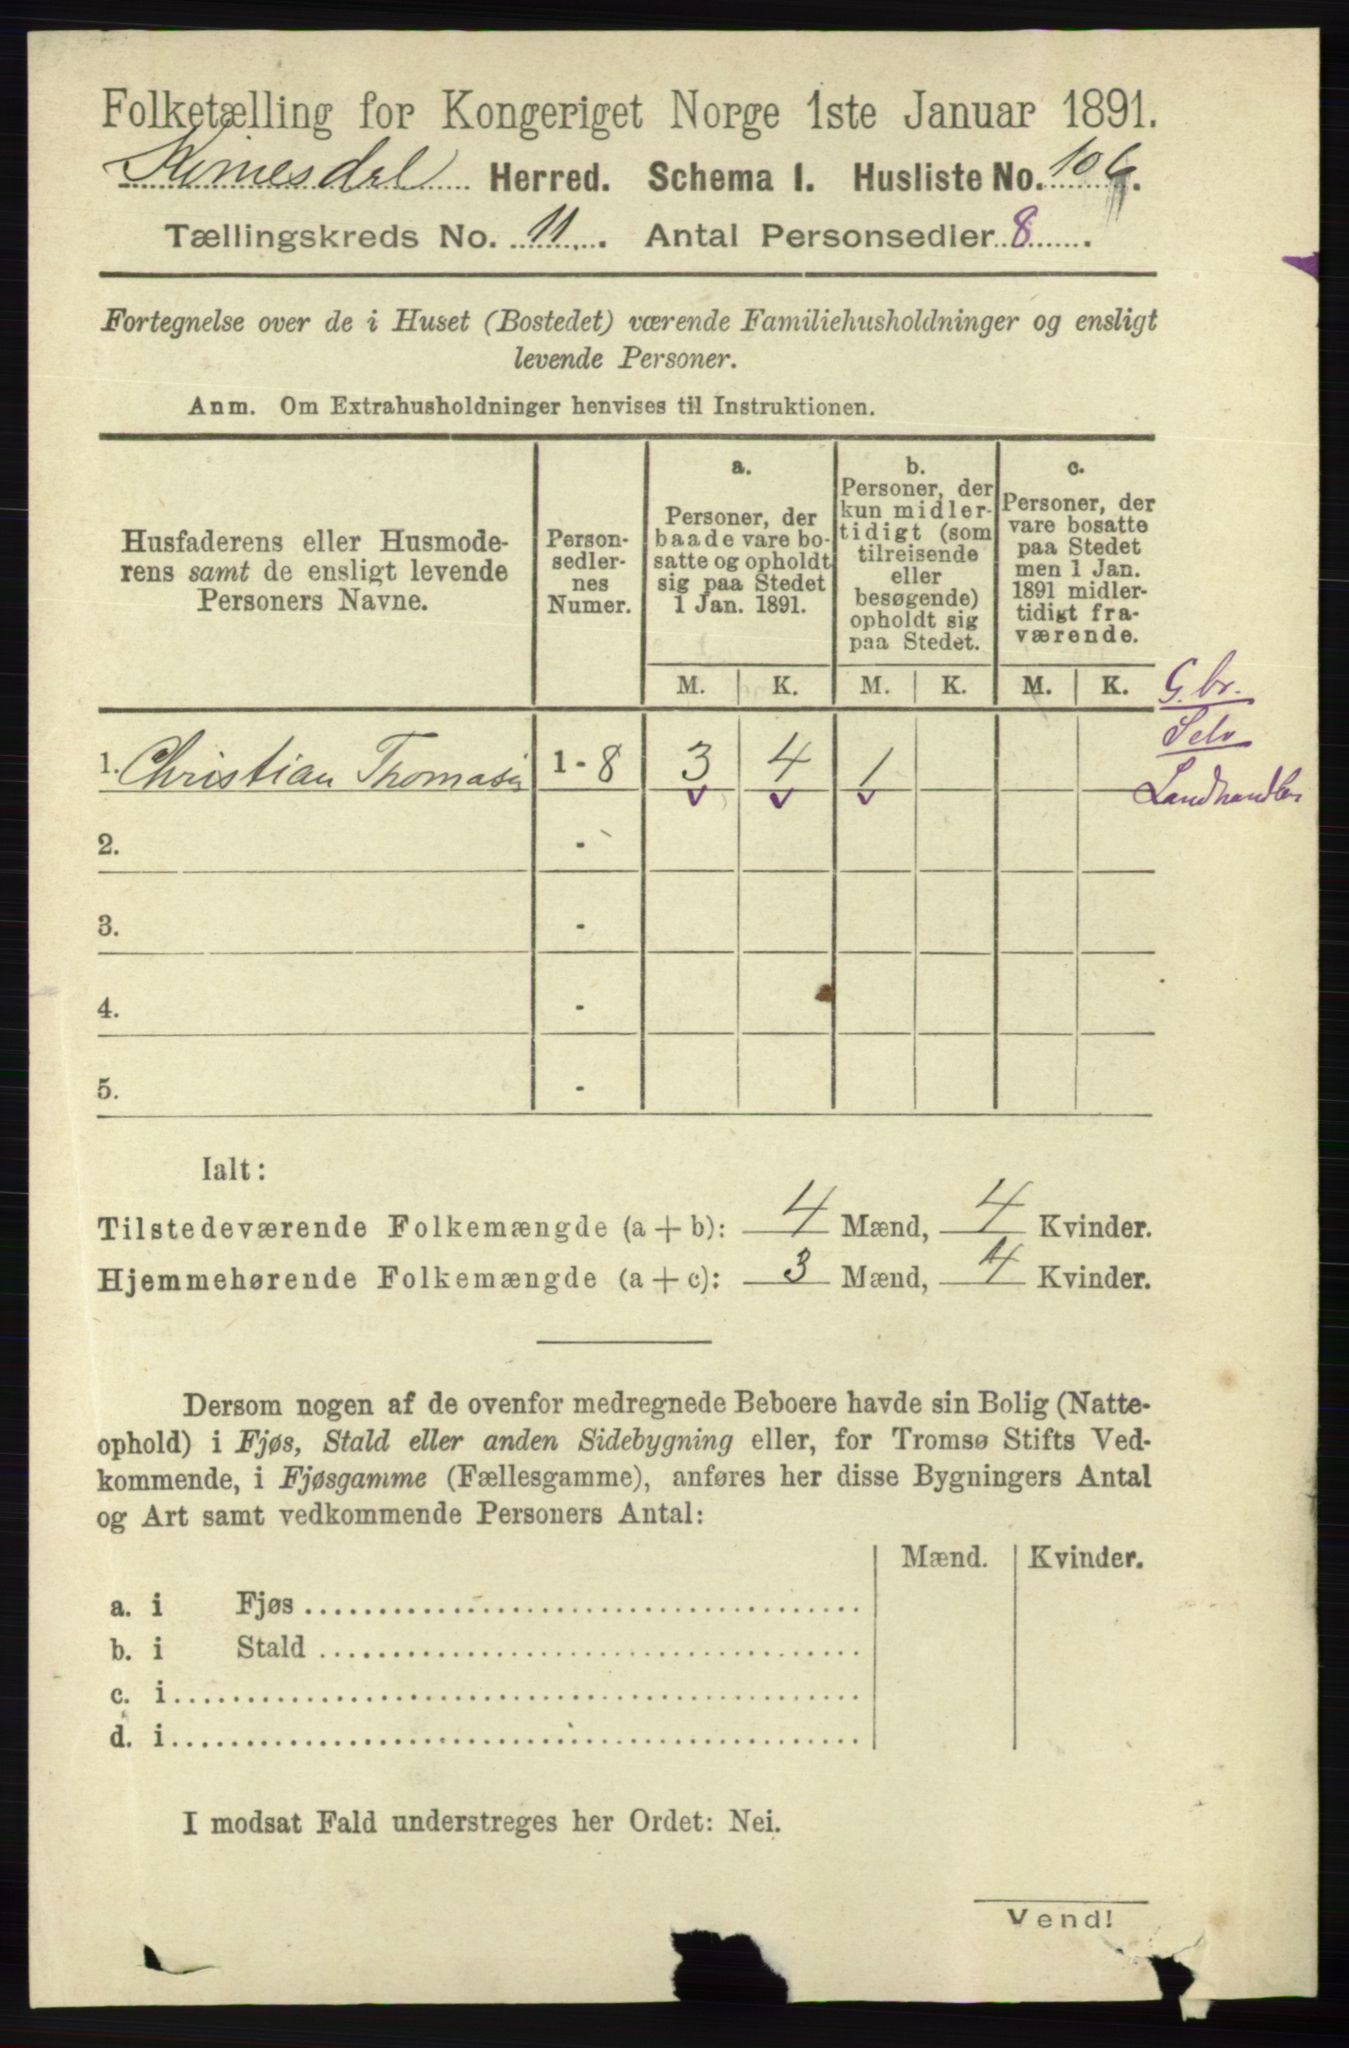 Folketælling for Kongeriget Norge 1ste Januar 1891.
Kvinesdal Herred. Schema I. Husliste No. 106.
Tællingskreds No. 11. Antal Personsedler 8.
Fortegnelse over de i Huset (Bostedet) værende Familiehusholdninger og ensligt
levende Personer.
Anm. Om Extrahusholdninger henvises til Instruktionen.
Husfaderens eller Husmode-
rens samt de ensligt levende
Personers Navne.
Person-
sedler-
nes
Numer.
a.
Personer, der
baade vare bo-
satte og opholdt
sig paa Stedet
1 Jan. 1891.
b.
Personer, der
kun midler-
tidigt (som
tilreisende
eller
besøgende)
opholdt sig
paa Stedet.
c.
Personer, der
vare bosatte
paa Stedet
men 1 Jan.
1891 midler-
tidigt fra-
værende.
M. K. M. K. M. K.
G.br.
Selv
Landhandler
1. Christian Thomasen 1 - 8 3 4 1
2. -
3. -
4. -
5. -
Ialt:
Tilstedeværende Folkemængde (a + b): 4 Mænd, 4 Kvinder.
Hjemmehørende Folkemængde (a + c): 3 Mænd, 4 Kvinder.
Dersom nogen af de ovenfor medregnede Beboere havde sin Bolig (Natte-
ophold) i Fjøs, Stald eller anden Sidebygning eller, for Tromsø Stifts Ved-
kommende, i Fjøsgamme (Fællesgamme), anføres her disse Bygningers Antal
og Art samt vedkommende Personers Antal:
Mænd. Kvinder.
a. i Fjøs
b. i Stald
c. i
d. i
I modsat Fald understreges her Ordet: Nei.
Vend!